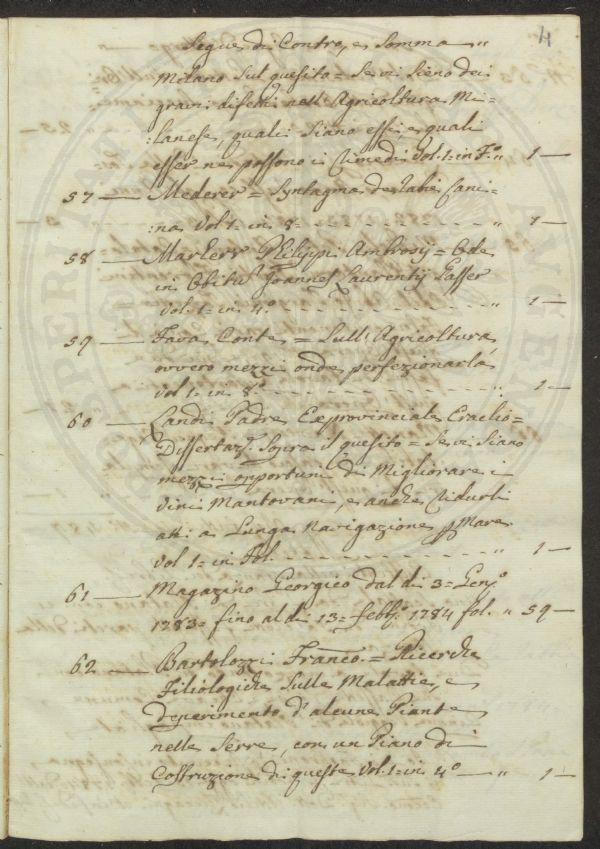 4
Segue di Contro, e Somma "
Milano Sul quesito = Se vi Sieno dei
gravi difetti nell'Agricoltura Mi-
:lanese, quali Siano essi, e quali
esser ne possono i Rimedi Vol. 1= in F.o " 1 —
57 — Mederer = Syntagma de Rabie Cani-
:na Vol 1= in 8= " 1 —
58 — Markerr Philippi Ambrosij = Ode
in Obitu Joannes Laurentij Gasser
Vol. 1= in 4.o " 1 —
59 — Fava Conte = Sull'Agricoltura
ovvero mezzi onde perfezionarla
Vol 1= in 8.o " 1 —
60 — Landi Padre Exprovinciale Eraclio =
Dissertaz. Sopra il quesito = Se vi Siano
mezzi opportuni di Migliorare i
Vini Mantovani, e anche Ridurli
atti a Lunga Navigazione p Mare
Vol 1= in Fol. " 1 —
61 — Magazino Georgico dal di 3= Gen.o
1783= fino al di 13= Febb.o 1784 fol. " 59 —
62 — Bartolozzi Franco. = Ricerche
Filiologiche Sulle Malattie, e
deperimento d'alcune Piante
nelle Serre, con un Piano di
Costruzione di queste Vol. 1= in 4.o — " 1 —